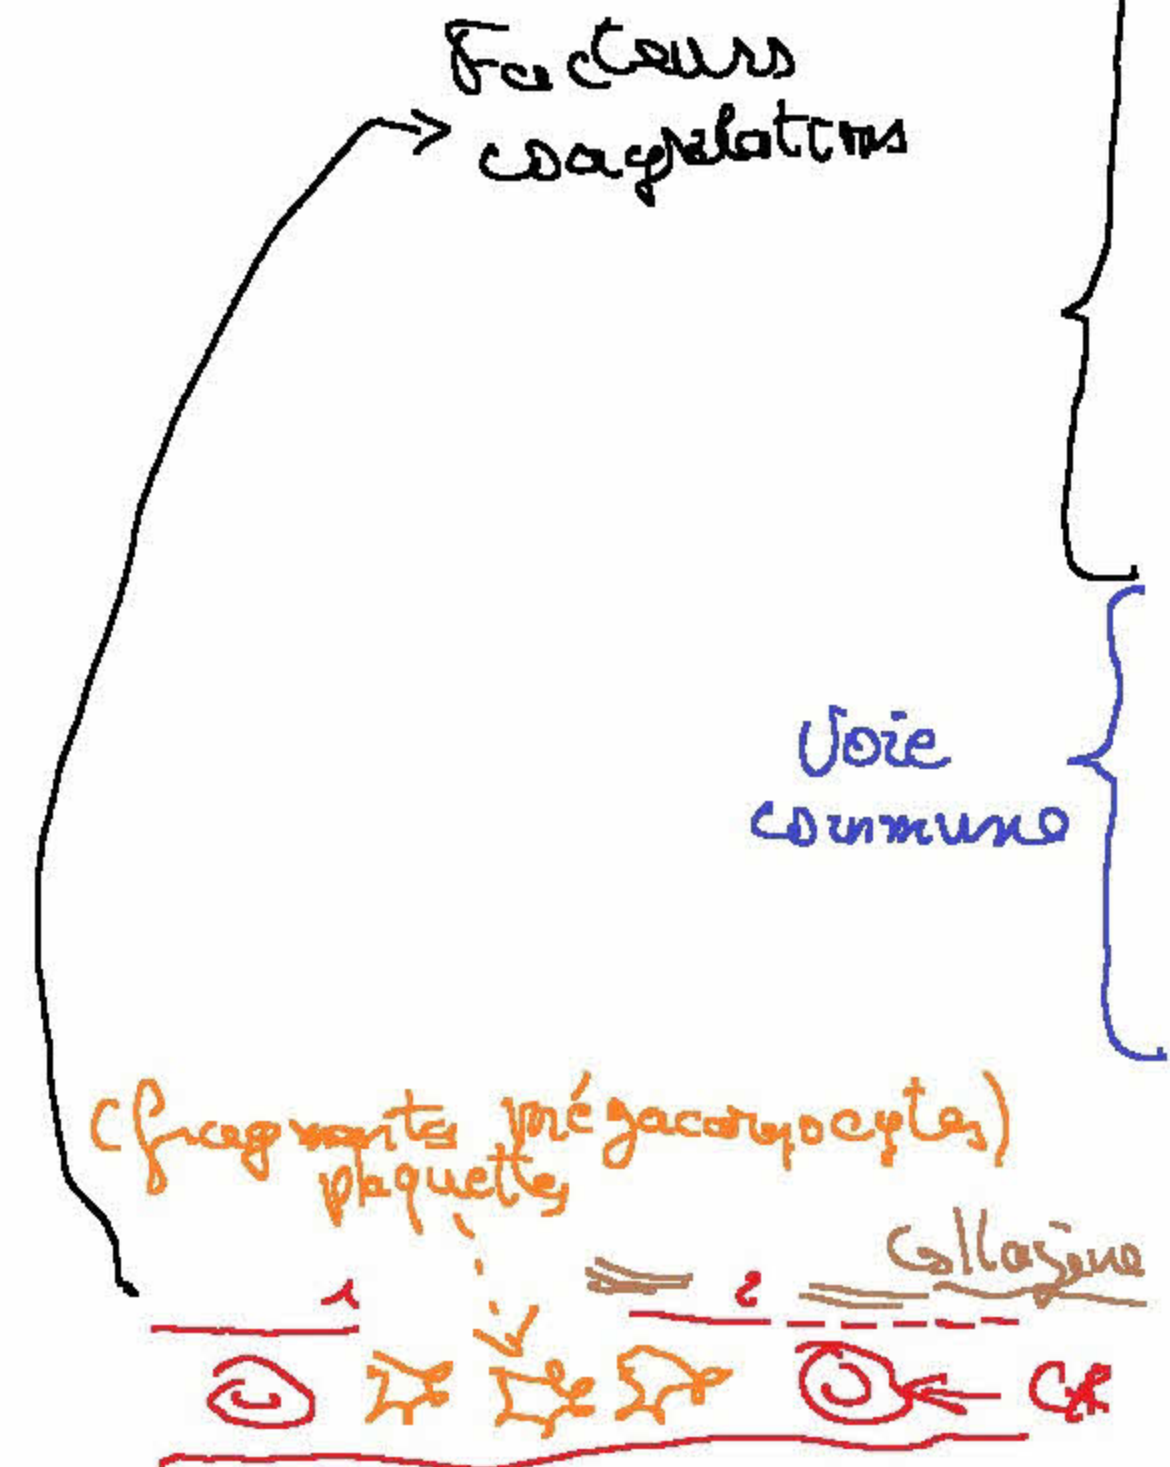 Facteurs
coagulations
Voie
commune
(fragments mégacaryocytes)
plaquettes
Collagène
1
2
GR